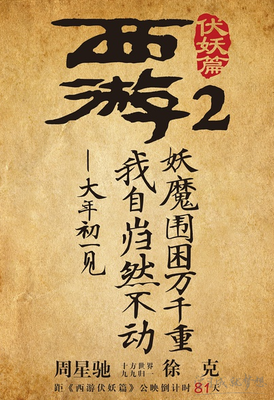 西游2
伏妖篇
妖魔围困万千重
我自岿然不动
—大年初一见
周星驰
十方世界
九九归一
徐 克
距《西游伏妖篇》公映倒计时81天